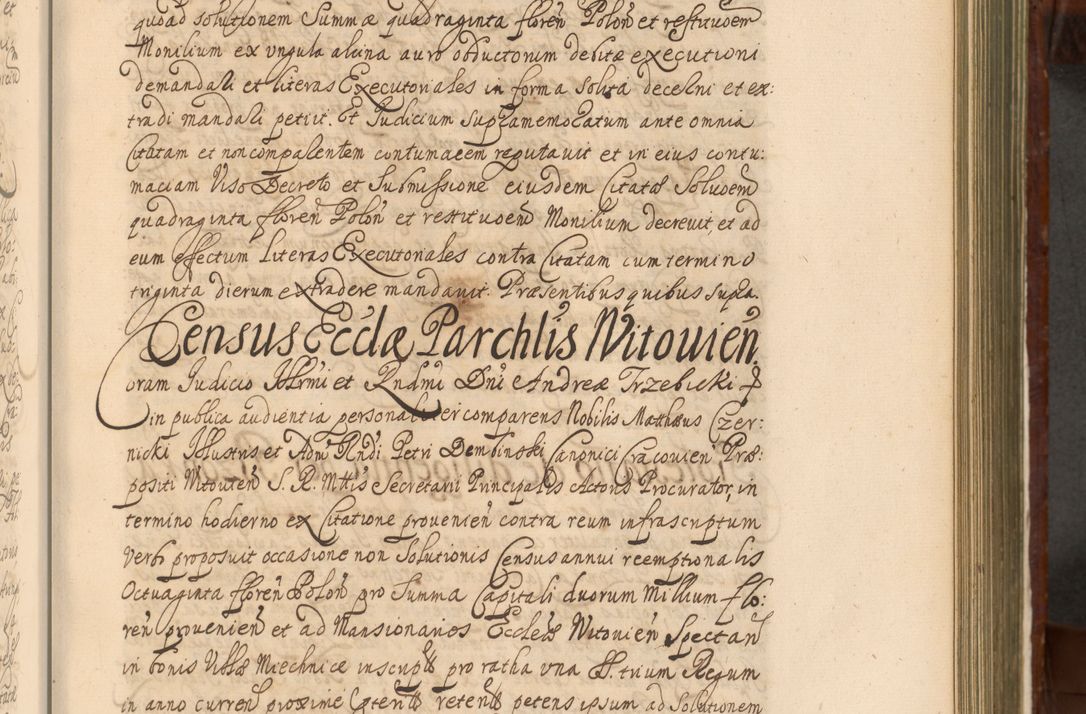 quoad solutionem Summæ quadraginta floren̄ Polon̄ et restituoem
Monilium ex vngula alcina auro obductorum debitæ executioni
demandari et literas Executoriales in forma solita decerni et ex:
tradi mandari petiit. Et Judicium supramemoratum ante omnia
Citatam et non comparentem contumacem reputauit et in eius contu:
maciam Viso Decreto et Submissione eiusdem Citatæ Soluoem
quadraginta floren̄ Polon̄ et restituoem Monilium decreuit, et ad
eum effectum literas Executoriales contra Citatam cum termino
triginta dierum extradere mandauit. Præsentibus quibus supra.
Census Ecclæ Parchlis Witouien.
Coram Judicio Illrmi et Rndmi Dni Andreæ Trzebicki
in publica audientia personaliter comparens Nobilis Matthæus Czer:
nicki Illustris et Adm Rndi Petri Dembinski Canonici Cracouien Præ:
positi Witouien S. R. Mttis Secretarii Principalis Actoris Procurator, in
termino hodierno ex Citatione prouenien contra reum infrascriptum
Verbo proposuit occasione non Solutionis Census annui reemptionalis
Octuaginta floren̄ Polon̄ pro Summa Capitali duorum Millium flo:
ren̄ prouenien̄ et ad Mansionarios Eccleæ Witouien Spectan̄
in bonis Villæ Miechnice inscript pro ratha vna SS. trium Regum
in anno curren̄ proxime reten̄ petens ipsum ad Solutionem